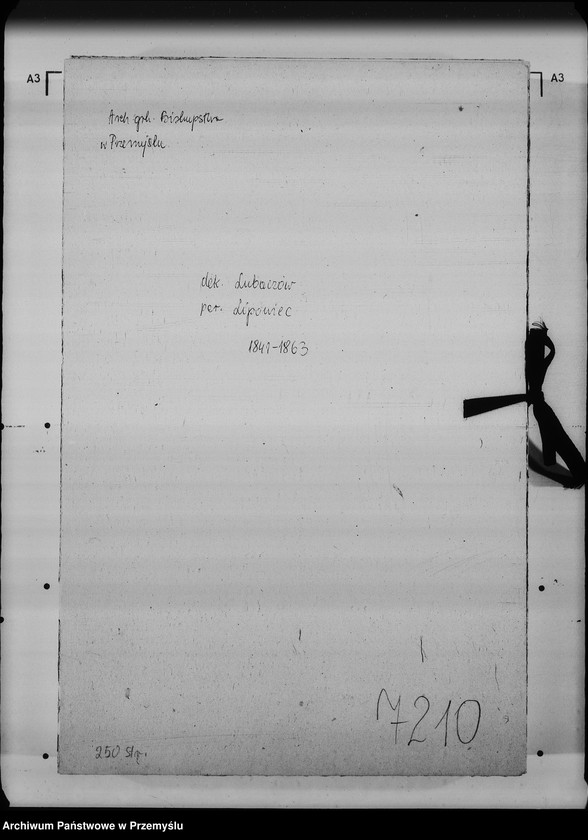 A3
A3
Arch. grk. Biskupstwa
w Przemyślu
dek. Lubaczów
par. Lipowiec
1841-1863
7210
250 str.
Archiwum Państwowe w Przemyślu